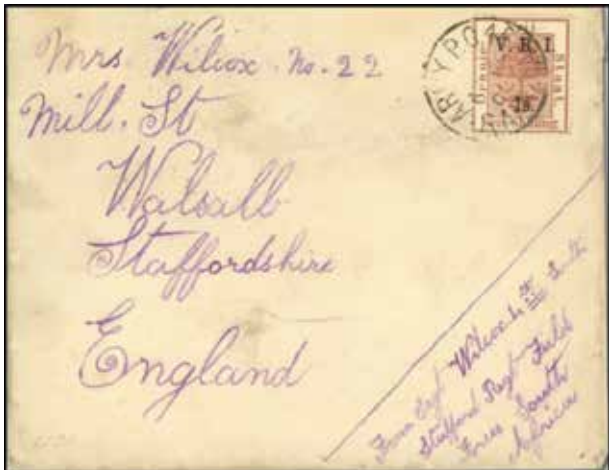 Mrs. Wilcox. No. 22
Mill. St
Walsall
Staffordshire
England
V. R. I.
Staat.
1d
ARMY PO
From Wilcox South
Stafford Regt Field
Force South
Africa